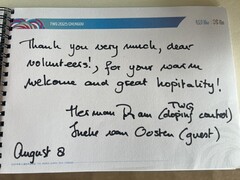 Thank you very much, dear
volunteers!, for your warm
welcome and great hopitality!
Herman Ram (TWG
doping control)
Ineke van Oosten (guest)
August 8